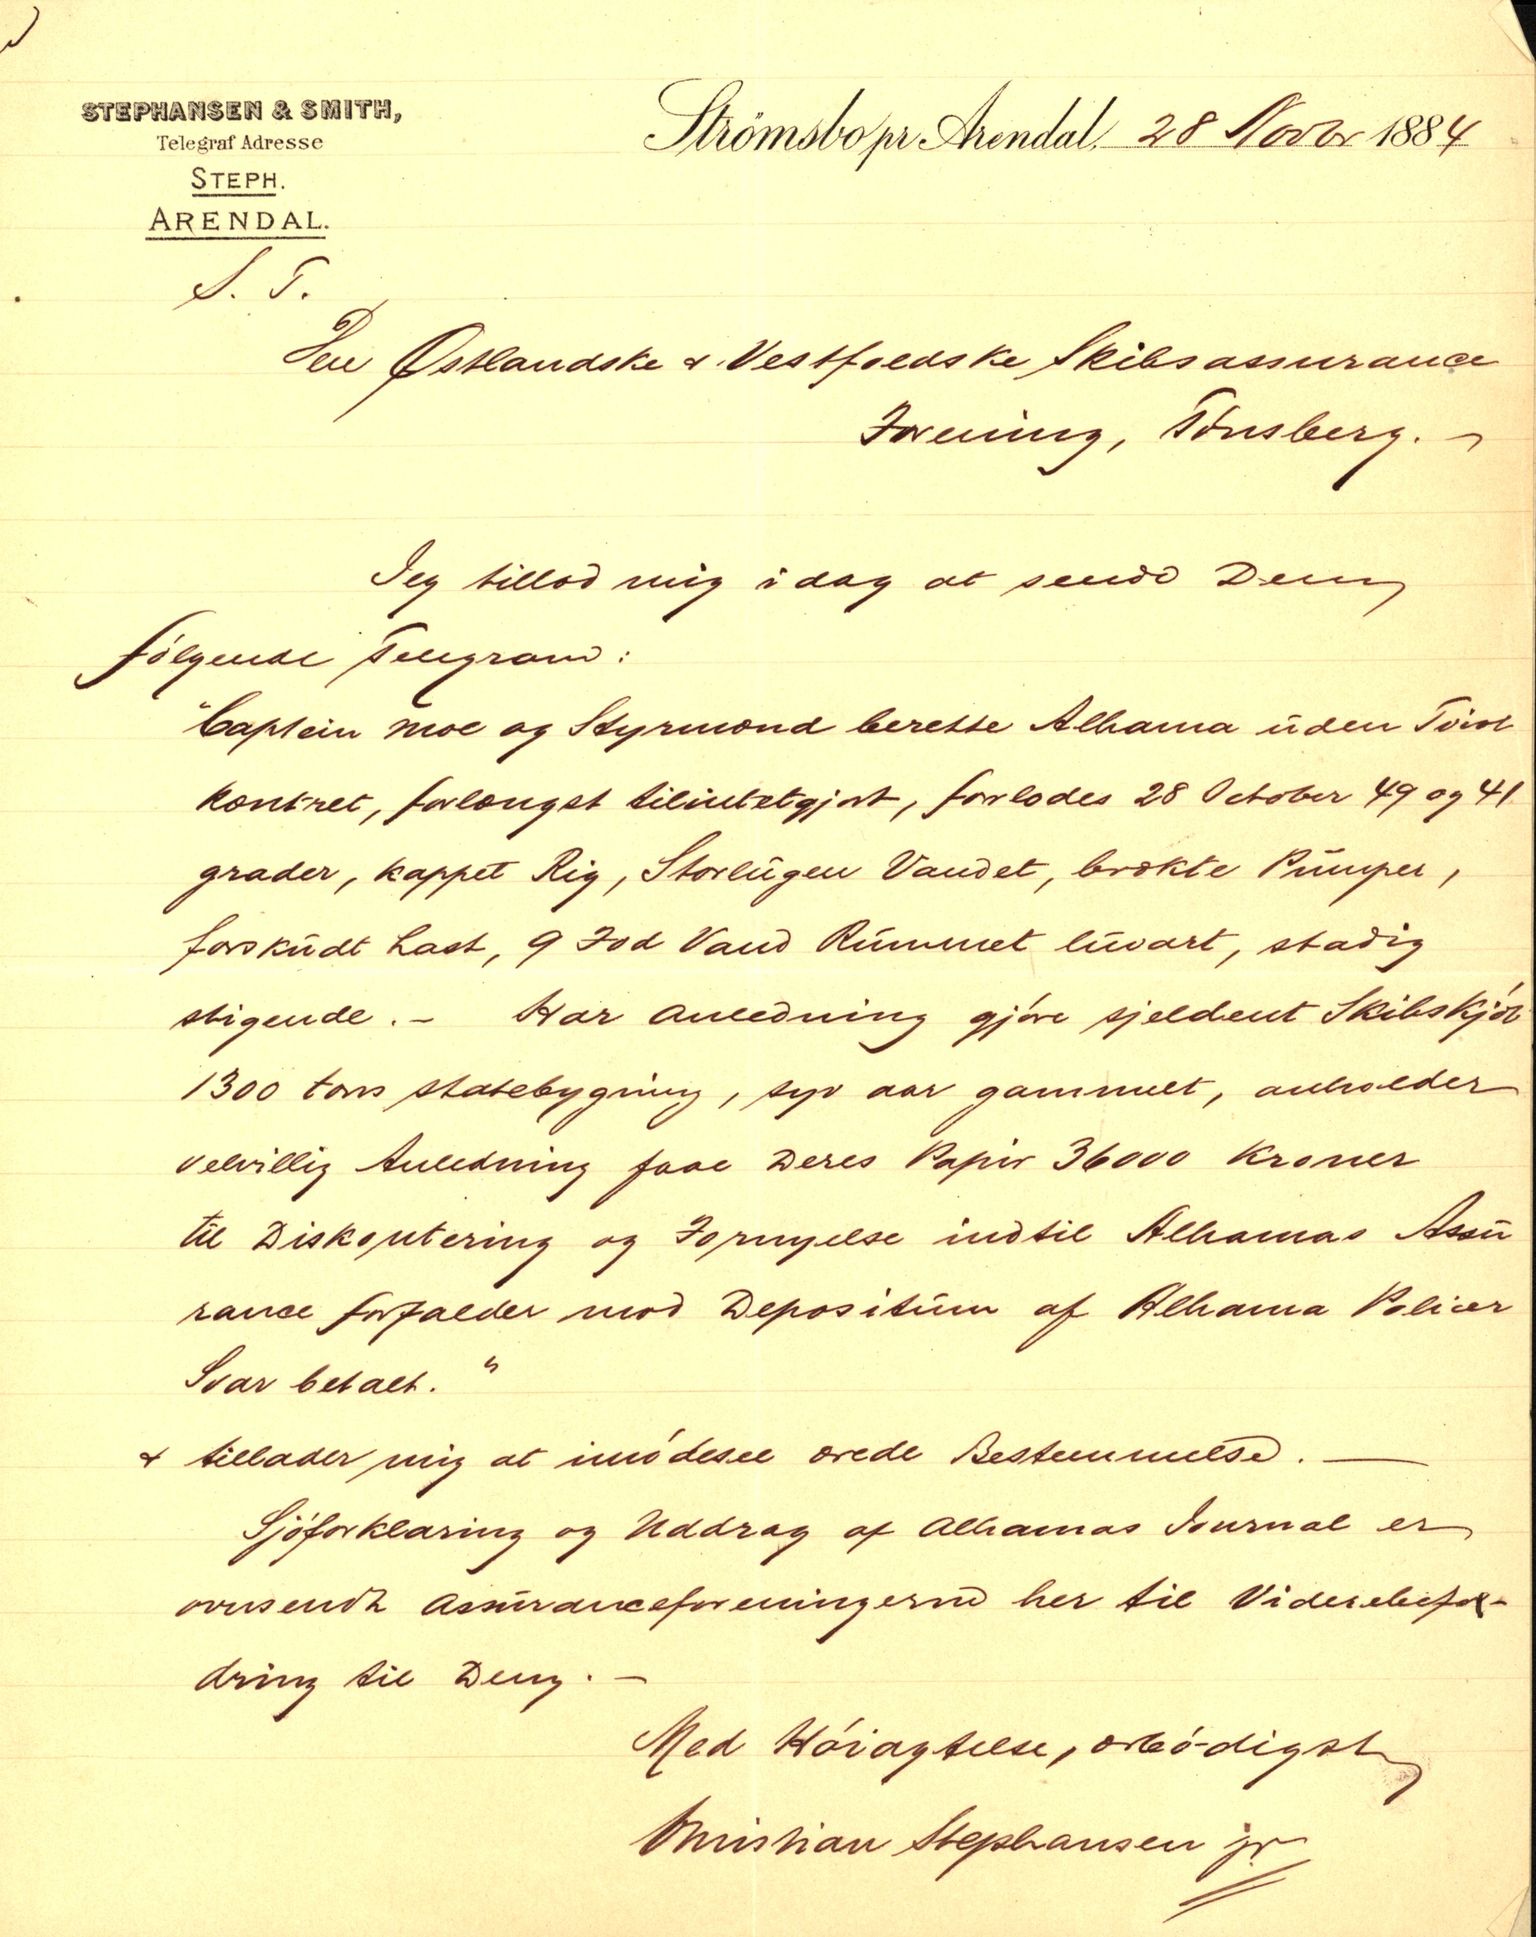 STEPHANSEN & SMITH,
Telegraf Adresse
STEPH.
ARENDAL.
Strömsbo pr. Arendal, 28 Novbr 1884
S. T.
Den Østlandske & Vestfoldske Skibsassurance
Forening, Tönsberg. -
Jeg tillod mig idag at sende Dem
følgende Telegram:
"Captein Moe og Styrmænd berette Alhama uden Tvivl
kæntret, forlængst tilintetgjort, forlodes 28 October 49 og 41
grader, kappet Rig, Storlugen Vandet, brækte Pumper,
forskudt Last, 9 Fod Vand Rummet luvart, stadig
stigende. - Har Anledning gjöre sjeldent Skibskjöb
1300 tons statebygning, syv aar gammelt, anholder
velvillig Anledning faae Deres Papir 36000 Kroner
til Diskontering og Fornyelse indtil Alhamas Assu
rance forfalder mod Depositum af Alhama Policer
Svar betalt."
& tillader mig at imödesee ærede Bestemmelse. -
Sjöforklaring og Uddrag af Alhamas Journal er
oversendt Assuranceforeningerne her til Viderebefor-
dring til Dem. -
Med Höiagtelse, ærbödigst
Christian Stephansen jr